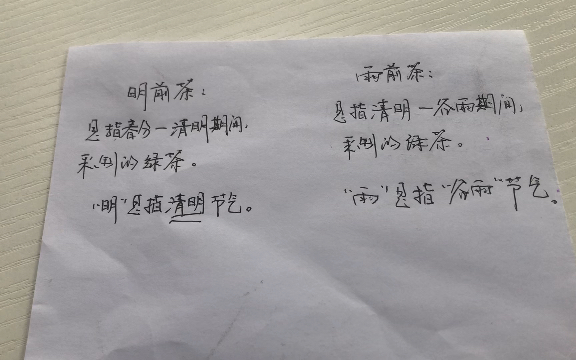 明前茶：
是指春分一清明期间，
采制的绿茶。
"明"是指清明节气。
雨前茶：
是指清明一谷雨期间，
采制的绿茶。
"雨"是指"谷雨"节气。